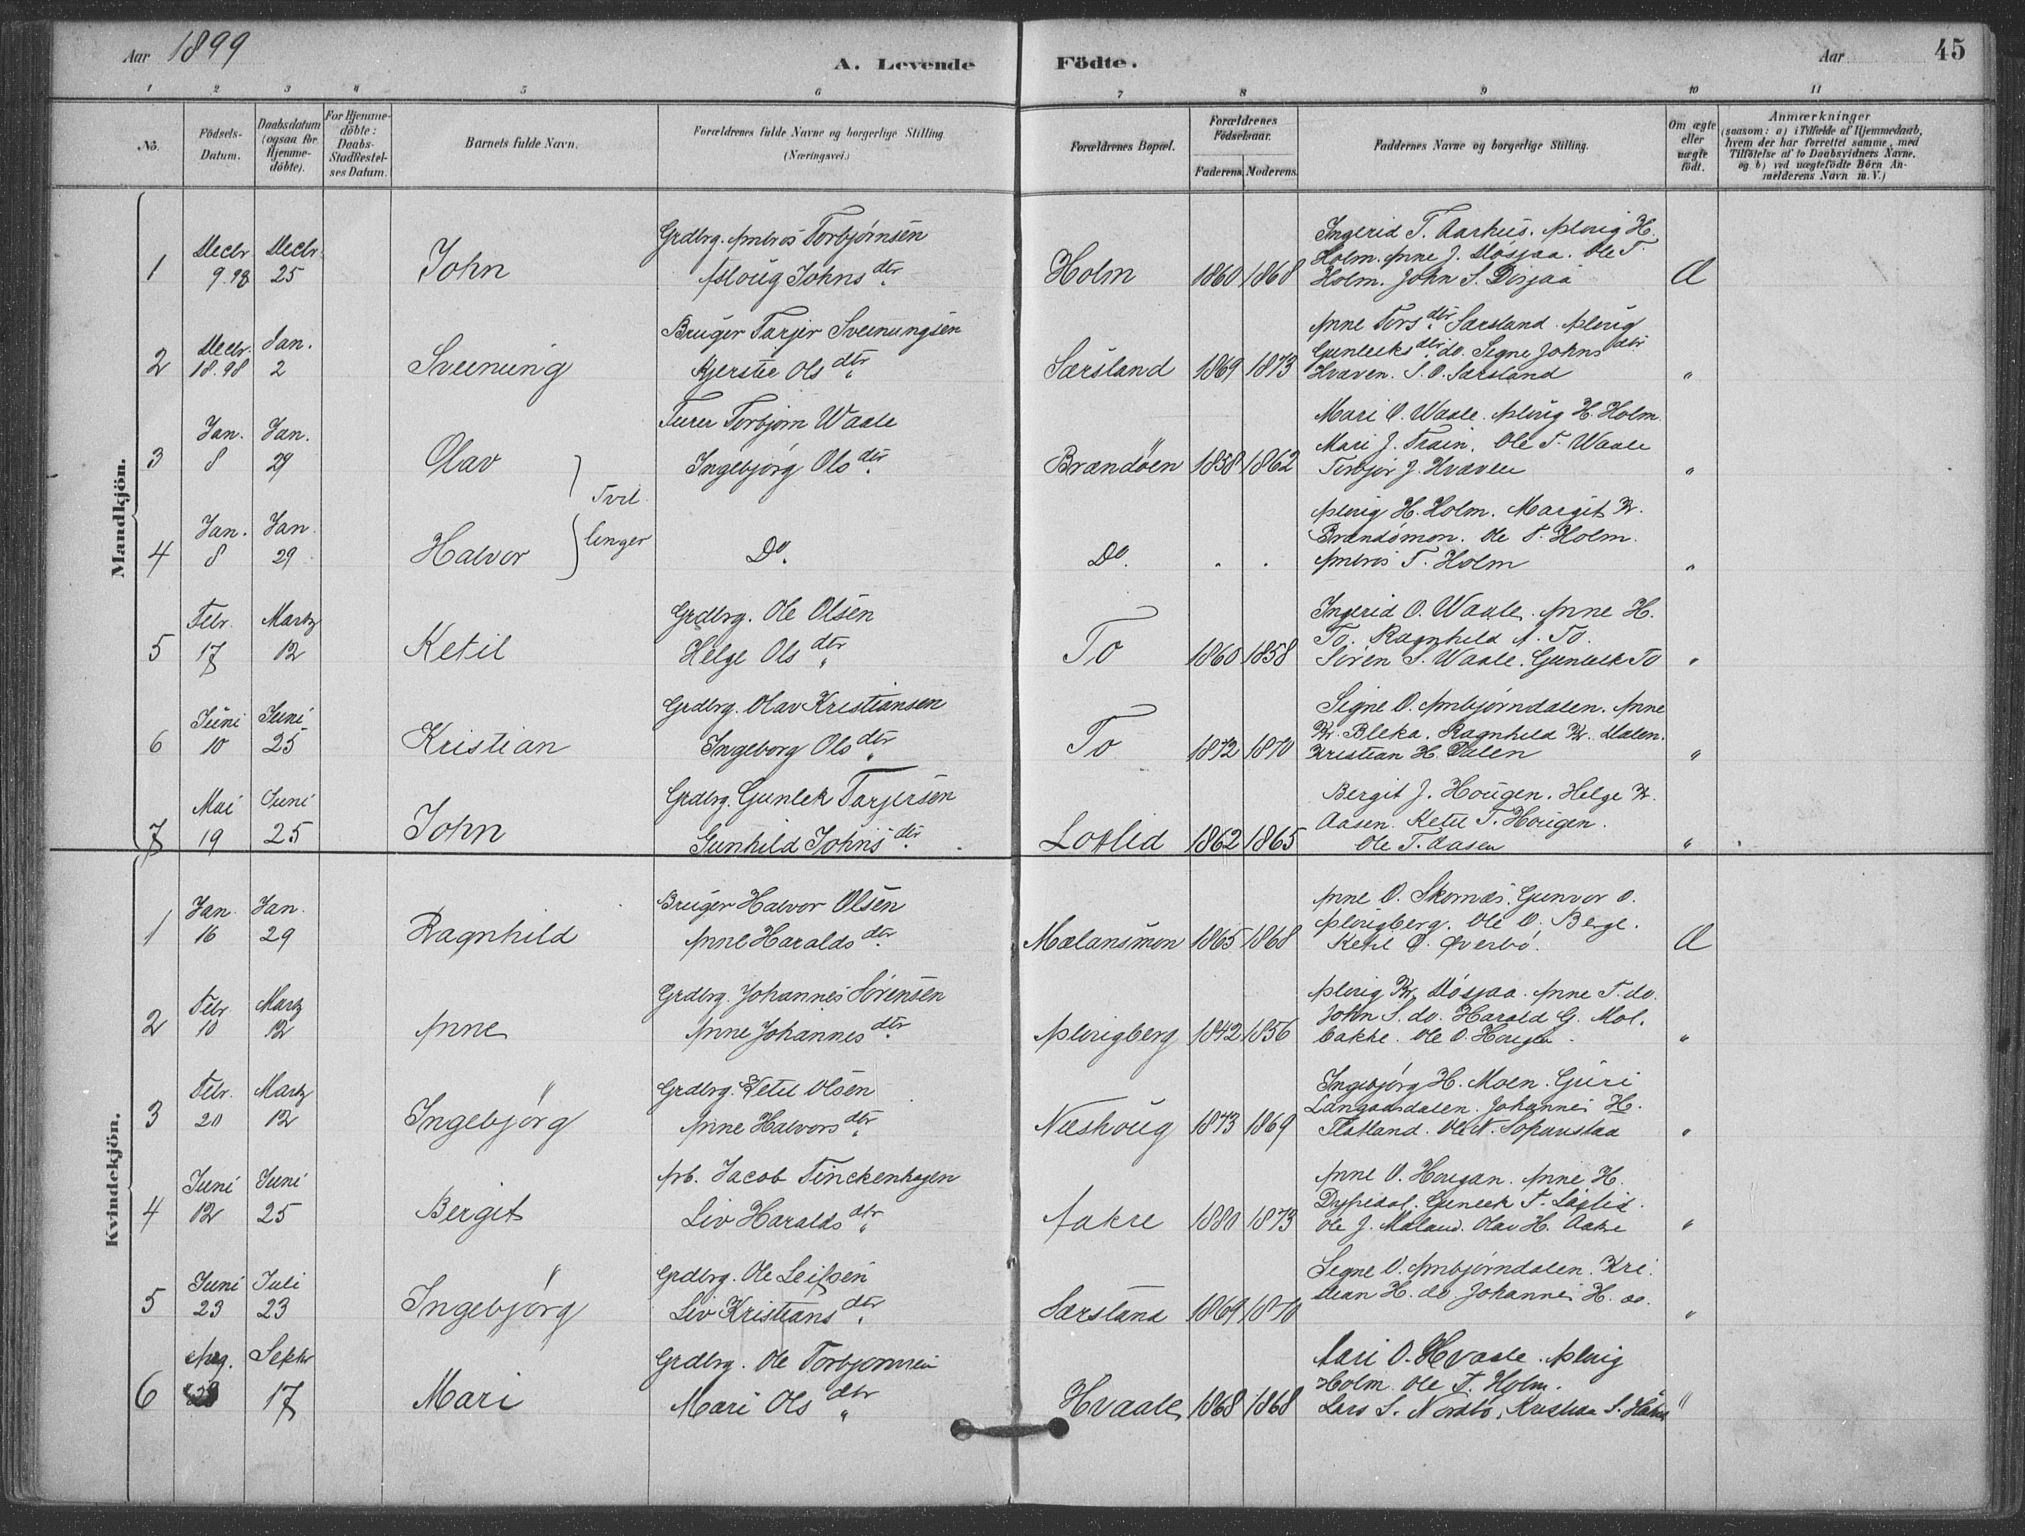 Aar 1899
A. Levende Födte.
Aar 45
1 2 3 4 5 6 7 8 9 10 11
No.
Födsels-
Datum.
Daabsdatum
(ogsaa for
Hjemme-
döbte).
For Hjemme-
döbte:
Daabs-
Stadfæstel-
ses Datum.
Barnets fulde Navn.
Forældrenes fulde Navne og borgerlige Stilling.
(Næringsvei.)
Forældrenes Bopæl.
Forældrenes
Födselsaar.
Faderens. Moderens.
Faddernes Navne og borgerlige Stilling.
Om ægte
eller
uægte
födt.
Anmærkninger
(saasom: a) i Tilfælde af Hjemmedaab,
hvem der har forrettet samme, med
Tilföielse af to Daabsvidners Navne,
og b) ved uægtefödte Börn An-
melderens Navn m. V.)
Mandkjön.
1 Decbr. 9.98 Decbr. 25 John
Grdbrg. Ambros Torbjørnsen
Asloug Johns dtr.
Holm 1860 1868
Ingerid T. Aarhus. Asloug H.
Holm. Anne J. Døsjaa. Ole T.
Holm. John S. Dosjaa
Æ
2 Decbr. 18.98 Jan. 2 Sveinung
Bruger Tarjer Sveinungsen
Kjerstie Ols dtr.
Særsland 1869 1873
Anne Tors dtr. Særsland. Asloug
Gunleeks dtr. do. Signe Johns dtr
Hvaven. S. O. Særsland
"
3 Jan. 8 Jan. 29 Olav
Furer Torbjørn Waale
Ingebjørg Ols dtr.
Brændöen 1858 1862
Mari O. Waale. Asloug H. Holm.
Mari J. Train. Ole T. Waale
Torbjør J. Hvaven
"
Tvil
linger
4 Jan. 8 Jan. 29 Halvor
Do.
Do. . .
Asloug H. Holm. Margit K.
Brændømon. Ole T. Holm.
Ambros T. Holm
"
5 Febr. 17 Martz 12 Ketil
Grdbrg. Ole Olsen
Helge Ols dtr.
To 1860 1858
Ingerid O. Waale. Anne H.
To. Ragnhild A. To.
Søren S. Waale. Gunleik To
"
6 Juni 10 Juni 25 Kristian
Grdbrg. Olav Kristiansen
Ingeborg Ols dtr.
To 1872 1870
Signe O. Ambjørndalen. Anne
K. Bleka. Ragnhild K. Dalen.
Kristian H. Dalen
"
7 Mai 19 Juni 25 John
Grdbrg. Gunlek Tarjersen
Gunhild Johns dtr.
Loftlid 1862 1865
Bergit J. Hougen. Helge K.
Aasen. Ketil T. Hougen.
Ole T. Aasen
"
Kvindekjön.
1 Jan. 16 Jan. 29 Ragnhild
Bruger Halvor Olsen
Anne Haralds dtr.
Mælansmon 1865 1868
Anne O. Skornæs. Gunvor O.
Aslougberg. Ole O. Berge.
Ketil O. Øverbø.
Æ
2 Febr. 10 Martz 12 Anne
Grdbrg. Johannes Sørensen
Anne Johannes dtr.
Aslougberg 1842 1856
Asloug K. Døsjaa. Anne T. do.
John S. do. Harald G. Mol.
bakke. Ole O. Hougen.
"
3 Febr. 20 Martz 12 Ingebjørg
Grdbrg. Ketil Olsen
Anne Halvors dtr.
Næshoug 1873 1869
Ingebjørg H. Moen. Guri
Langaasdalen. Johannes H.
Flatland. Ole N. Sopanstaa
"
4 Juni 12 Juni 25 Bergit
Arb. Jacob Finckenhagen
Liv Haralds dtr.
Aakre 1880 1873
Anne O. Hougan. Anne H.
Dyfredal. Gunleek T. Løflid.
Ole J. Moland. Olav H. Aakre
"
5 Juni 23 Juli 23 Ingebjørg
Grdbrg. Ole Leifsen
Liv Kristians dtr.
Særsland 1869 1870
Signe O. Ambjørndalen. Kri
stian H. do Johannes H. do.
"
6 Aug. Septbr 17 Mari
Grdbrg. Ole Torbjørnsen
Mari Ols dtr
Hvaale 1868 1868
Aari O. Hvaale. Asloug
Holm. Ole T. Holm.
Lars S. Nordbø, Kristian S. 
"